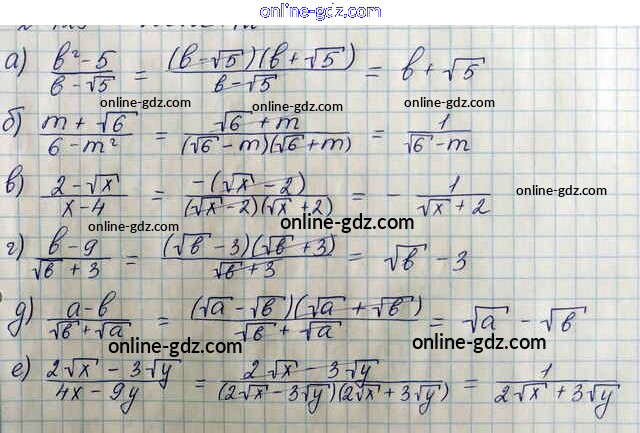 online-gdz.com
а) (b²-5)/(b-√5) = ((b-√5)(b+√5))/(b-√5) = b+√5
online-gdz.com online-gdz.com
б) (m+√6)/(6-m²) = (√6+m)/((√6-m)(√6+m)) = 1/(√6-m)
online-gdz.com
в) (2-√x)/(x-4) = (-(√x-2))/((√x-2)(√x+2)) = - 1/(√x+2)
online-gdz.com
online-gdz.com online-gdz.com
г) (b-9)/(√b+3) = ((√b-3)(√b+3))/(√b+3) = √b-3
online-gdz.com
д) (a-b)/(√b+√a) = ((√a-√b)(√a+√b))/(√b+√a) = √a-√b
online-gdz.com online-gdz.com
е) (2√x-3√y)/(4x-9y) = (2√x-3√y)/((2√x-3√y)(2√x+3√y)) = 1/(2√x+3√y)